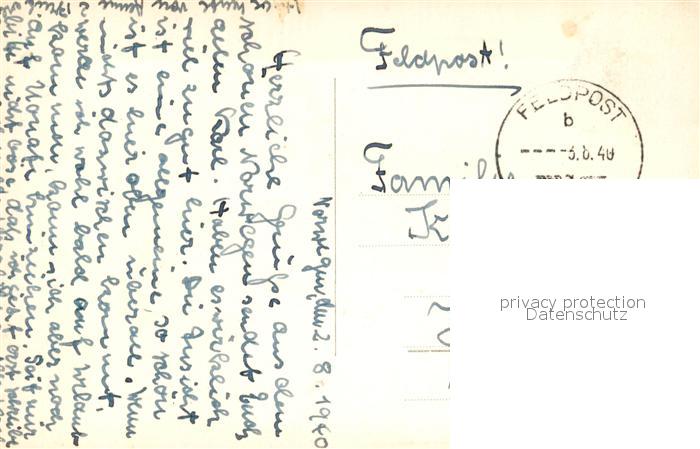 Feldpost!
FELDPOST
b
-3.8.40
Familie
K
privacy protection
Datenschutz
Norwegen, den 2.8.1940
Herzliche Grüße aus dem
schönen Norwegen sendet Euch
allen Karl. Haben es wirklich
viel zu gut hier. Die Ansicht
ist eine allgemeine, so schön
ist es hier oben überall. Wenn
nichts dazwischen kommt,
werde ich wohl bald auf Urlaub
kann man, kann sich aber noch
auf Monate hinziehen. Seit mir
nicht böse, daß ich jetzt erst